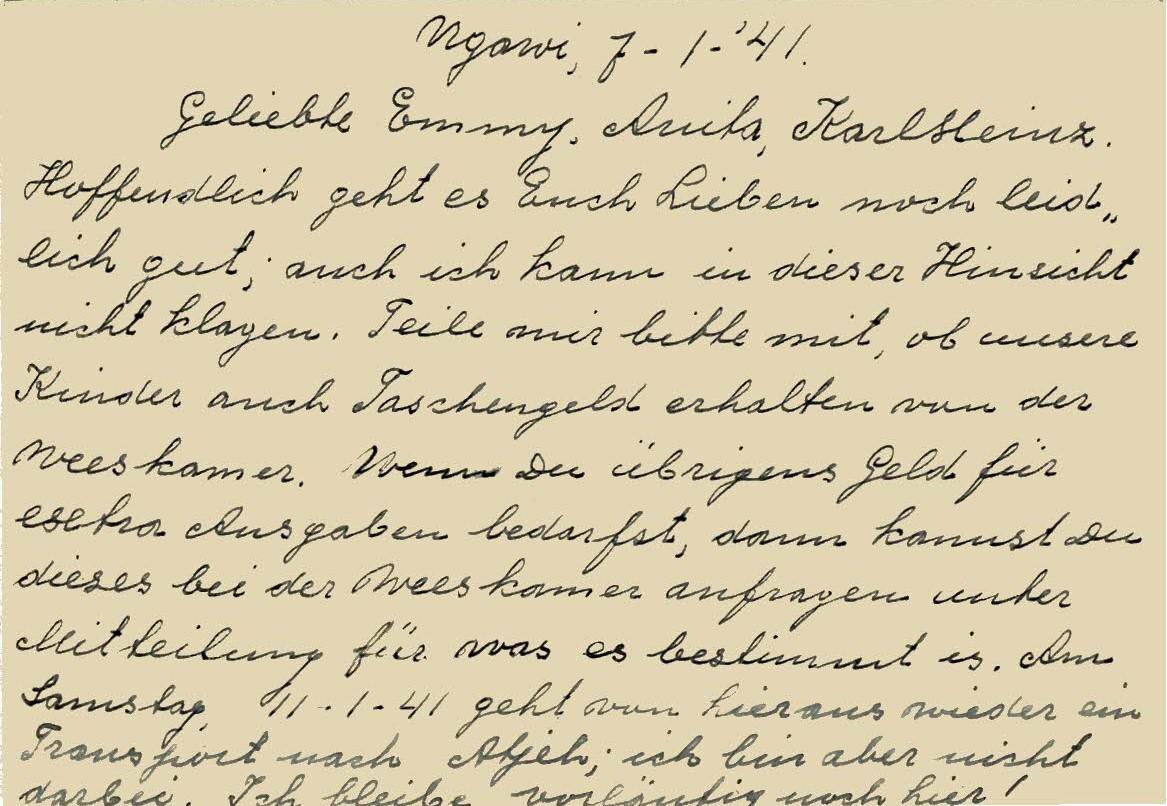 Ngawi, 7-1-'41.
Geliebte Emmy, Anita, KarlHeinz.
Hoffendlich geht es Euch Lieben noch leid„
lich gut; auch ich kann in dieser Hinsicht
nicht klagen. Teile mir bitte mit, ob unsere
Kinder auch Taschengeld erhalten von der
Weeskamer. Wenn Du übrigens Geld für
esctra Ausgaben bedarfst, dann kannst Du
dieses bei der Weeskamer anfragen unter
Mitteilung für was es bestimmt is. Am
Samstag, 11-1-41 geht von hieraus wieder ein
Transport nach Atjeh; ich bin aber nicht
darbei. Ich bleibe vorläufig noch hier!